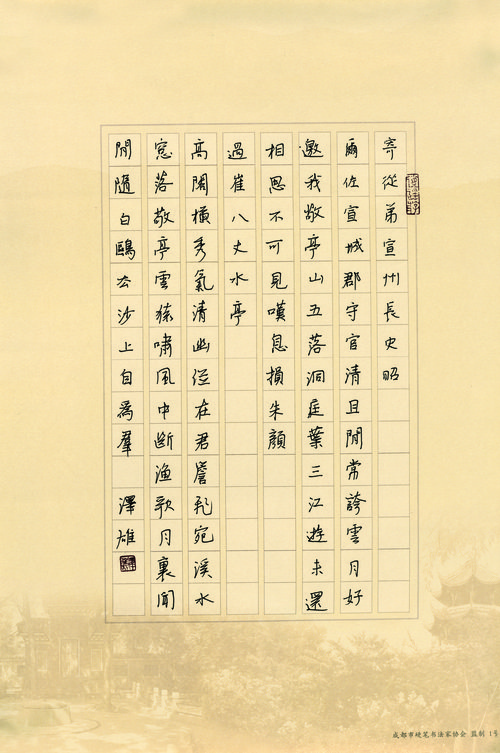 寄從弟宣州長史昭
爾佐宣城郡守官清且閒常誇雲月好
邀我敬亭山五落洞庭葉三江遊未還
相思不可見嘆息損朱顏
過崔八丈水亭
高閣橫秀氣清幽併在君簷飛宛溪水
窓落敬亭雲猿嘯風中斷漁歌月裏聞
閒隨白鷗去沙上自為羣 澤雄
成都市硬笔书法家协会 监制 1号